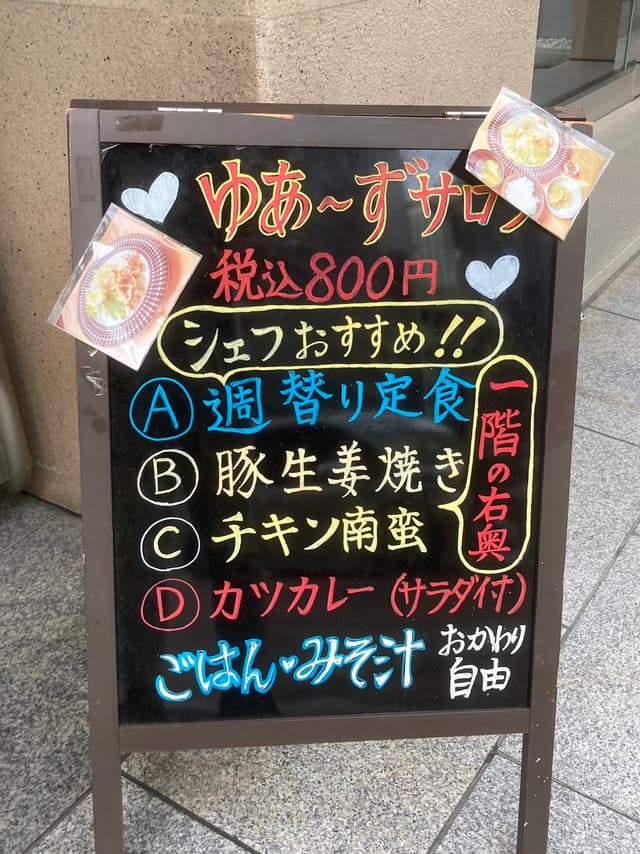 ゆあ～ずサロン
税込800円
シェフおすすめ!!
Ⓐ 週替り定食
Ⓑ 豚生姜焼き
Ⓒ チキン南蛮
Ⓓ カツカレー (サラダ付)
一階の右奥
ごはん♥みそ汁 おかわり
自由